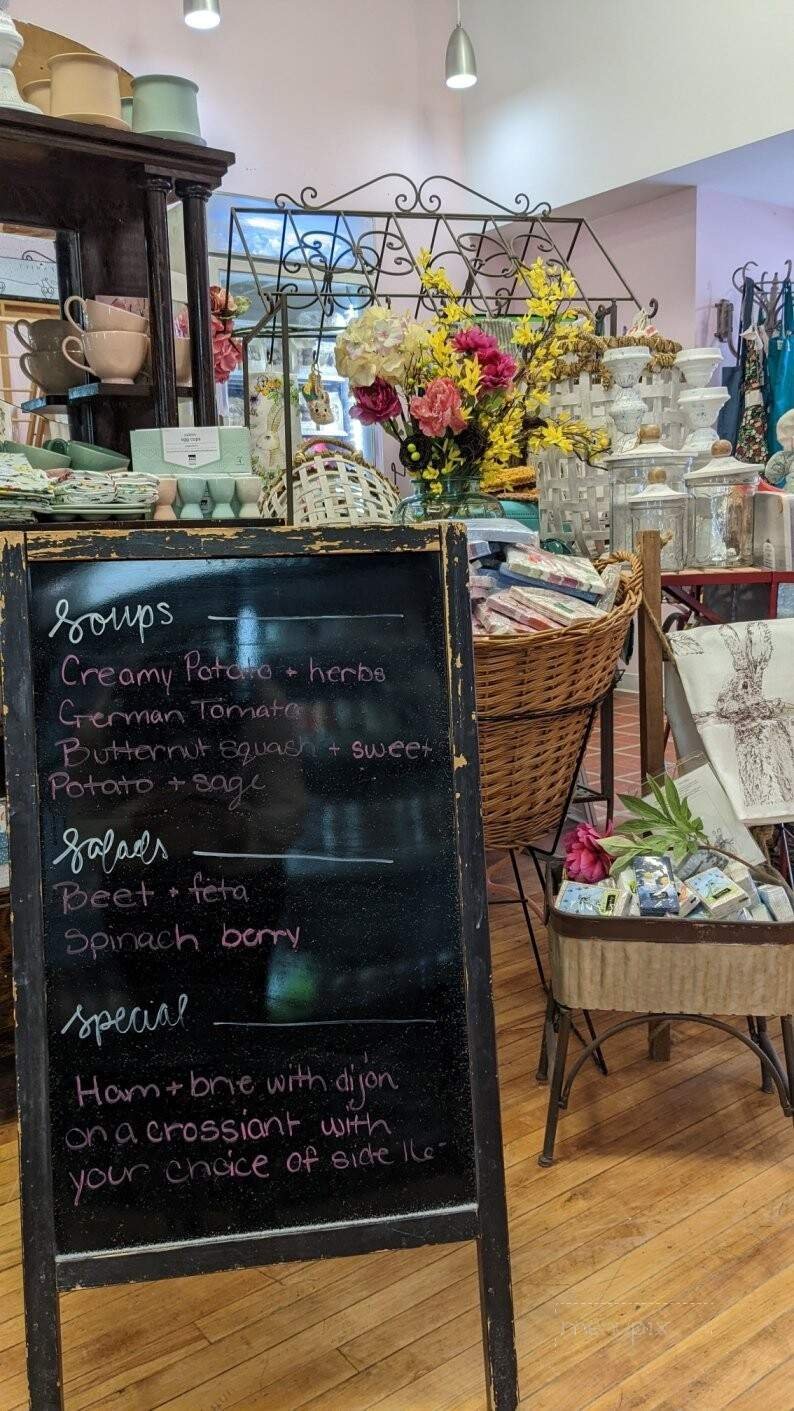 Soups
Creamy Potato + herbs
German Tomato
Butternut squash + sweet
Potato + sage
Salads
Beet + feta
Spinach berry
Special
Ham + brie with dijon
on a crossiant with
your choice of side 16-
menupix